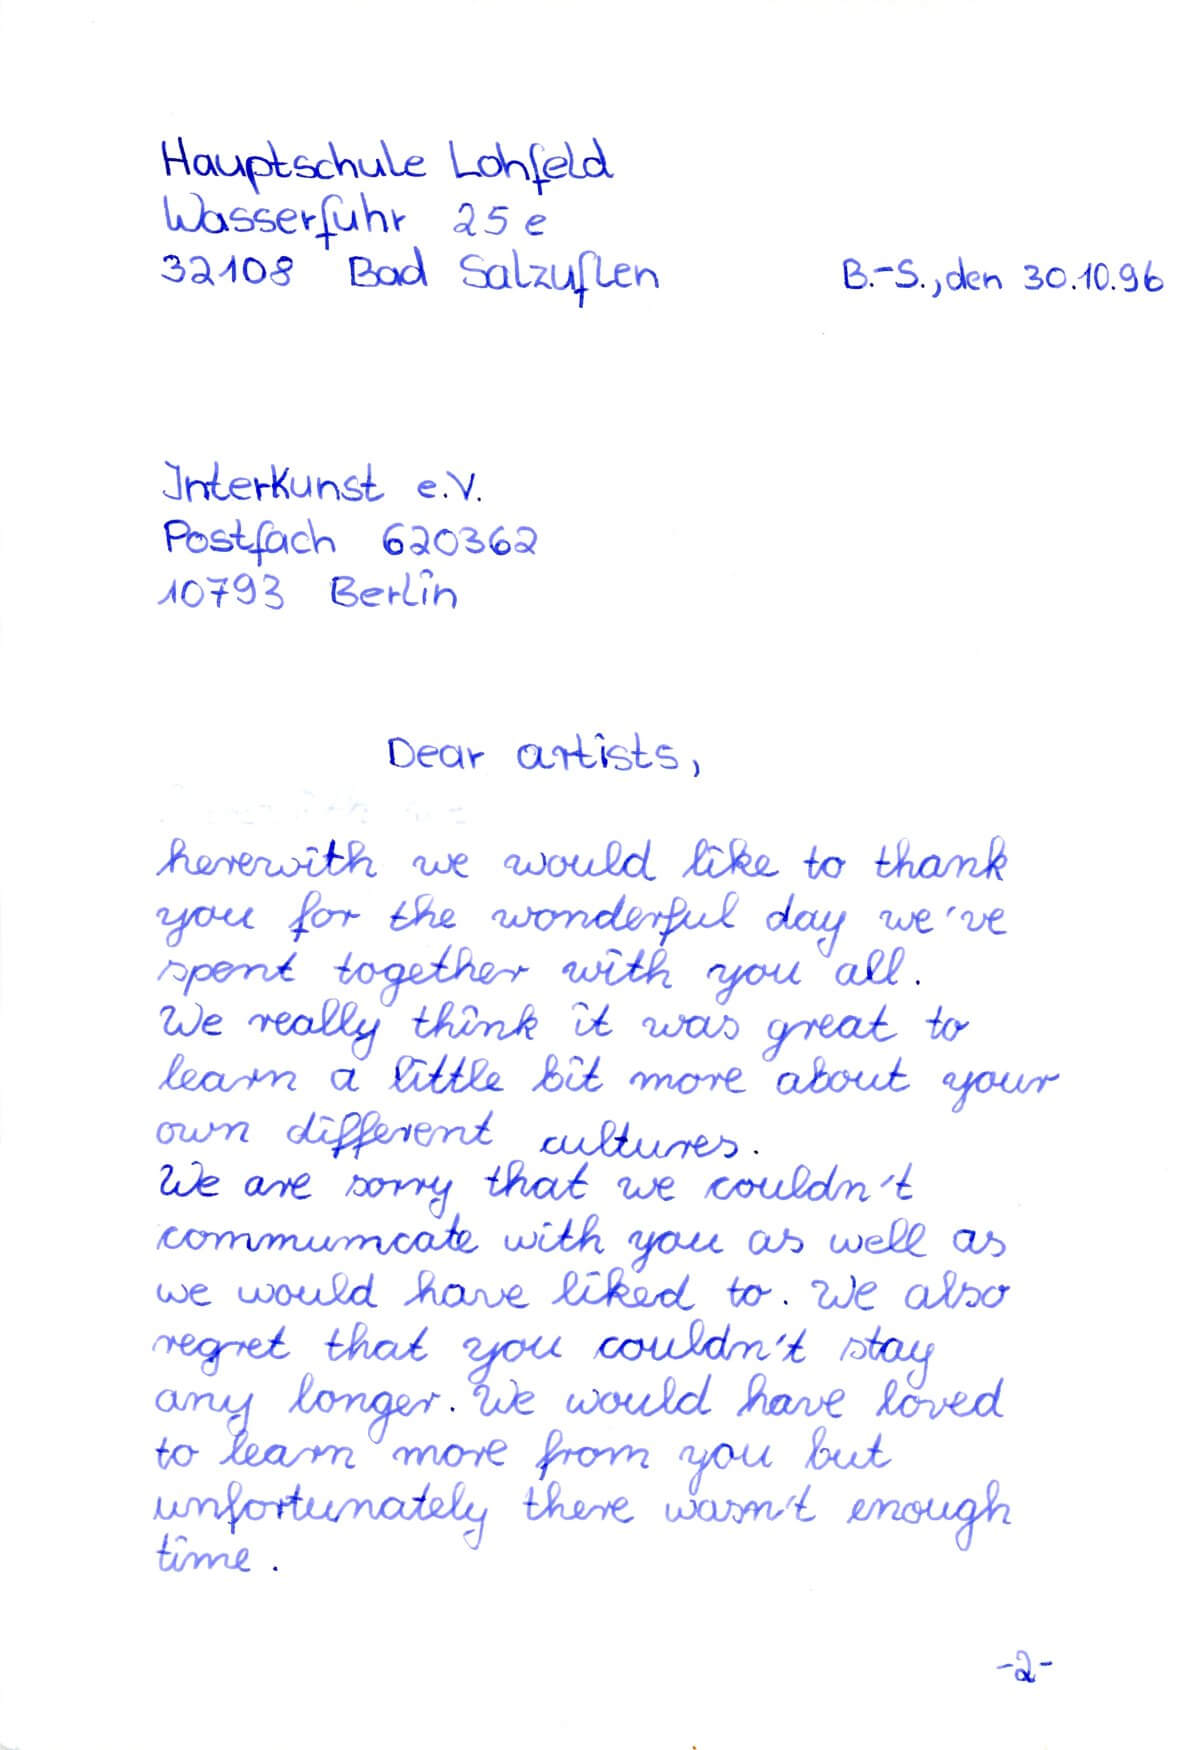 Hauptschule Lohfeld
Wasserfuhr 25 e
32108 Bad Salzuflen
B.-S., den 30.10.96
InterKunst e.V.
Postfach 620362
10793 Berlin
Dear artists,
herewith we would like to thank
you for the wonderful day we've
spent together with you all.
We really think it was great to
learn a little bit more about your
own different cultures.
We are sorry that we couldn't
communicate with you as well as
we would have liked to. We also
regret that you couldn't stay
any longer. We would have loved
to learn more from you but
unfortunately there wasn't enough
time.
-2-